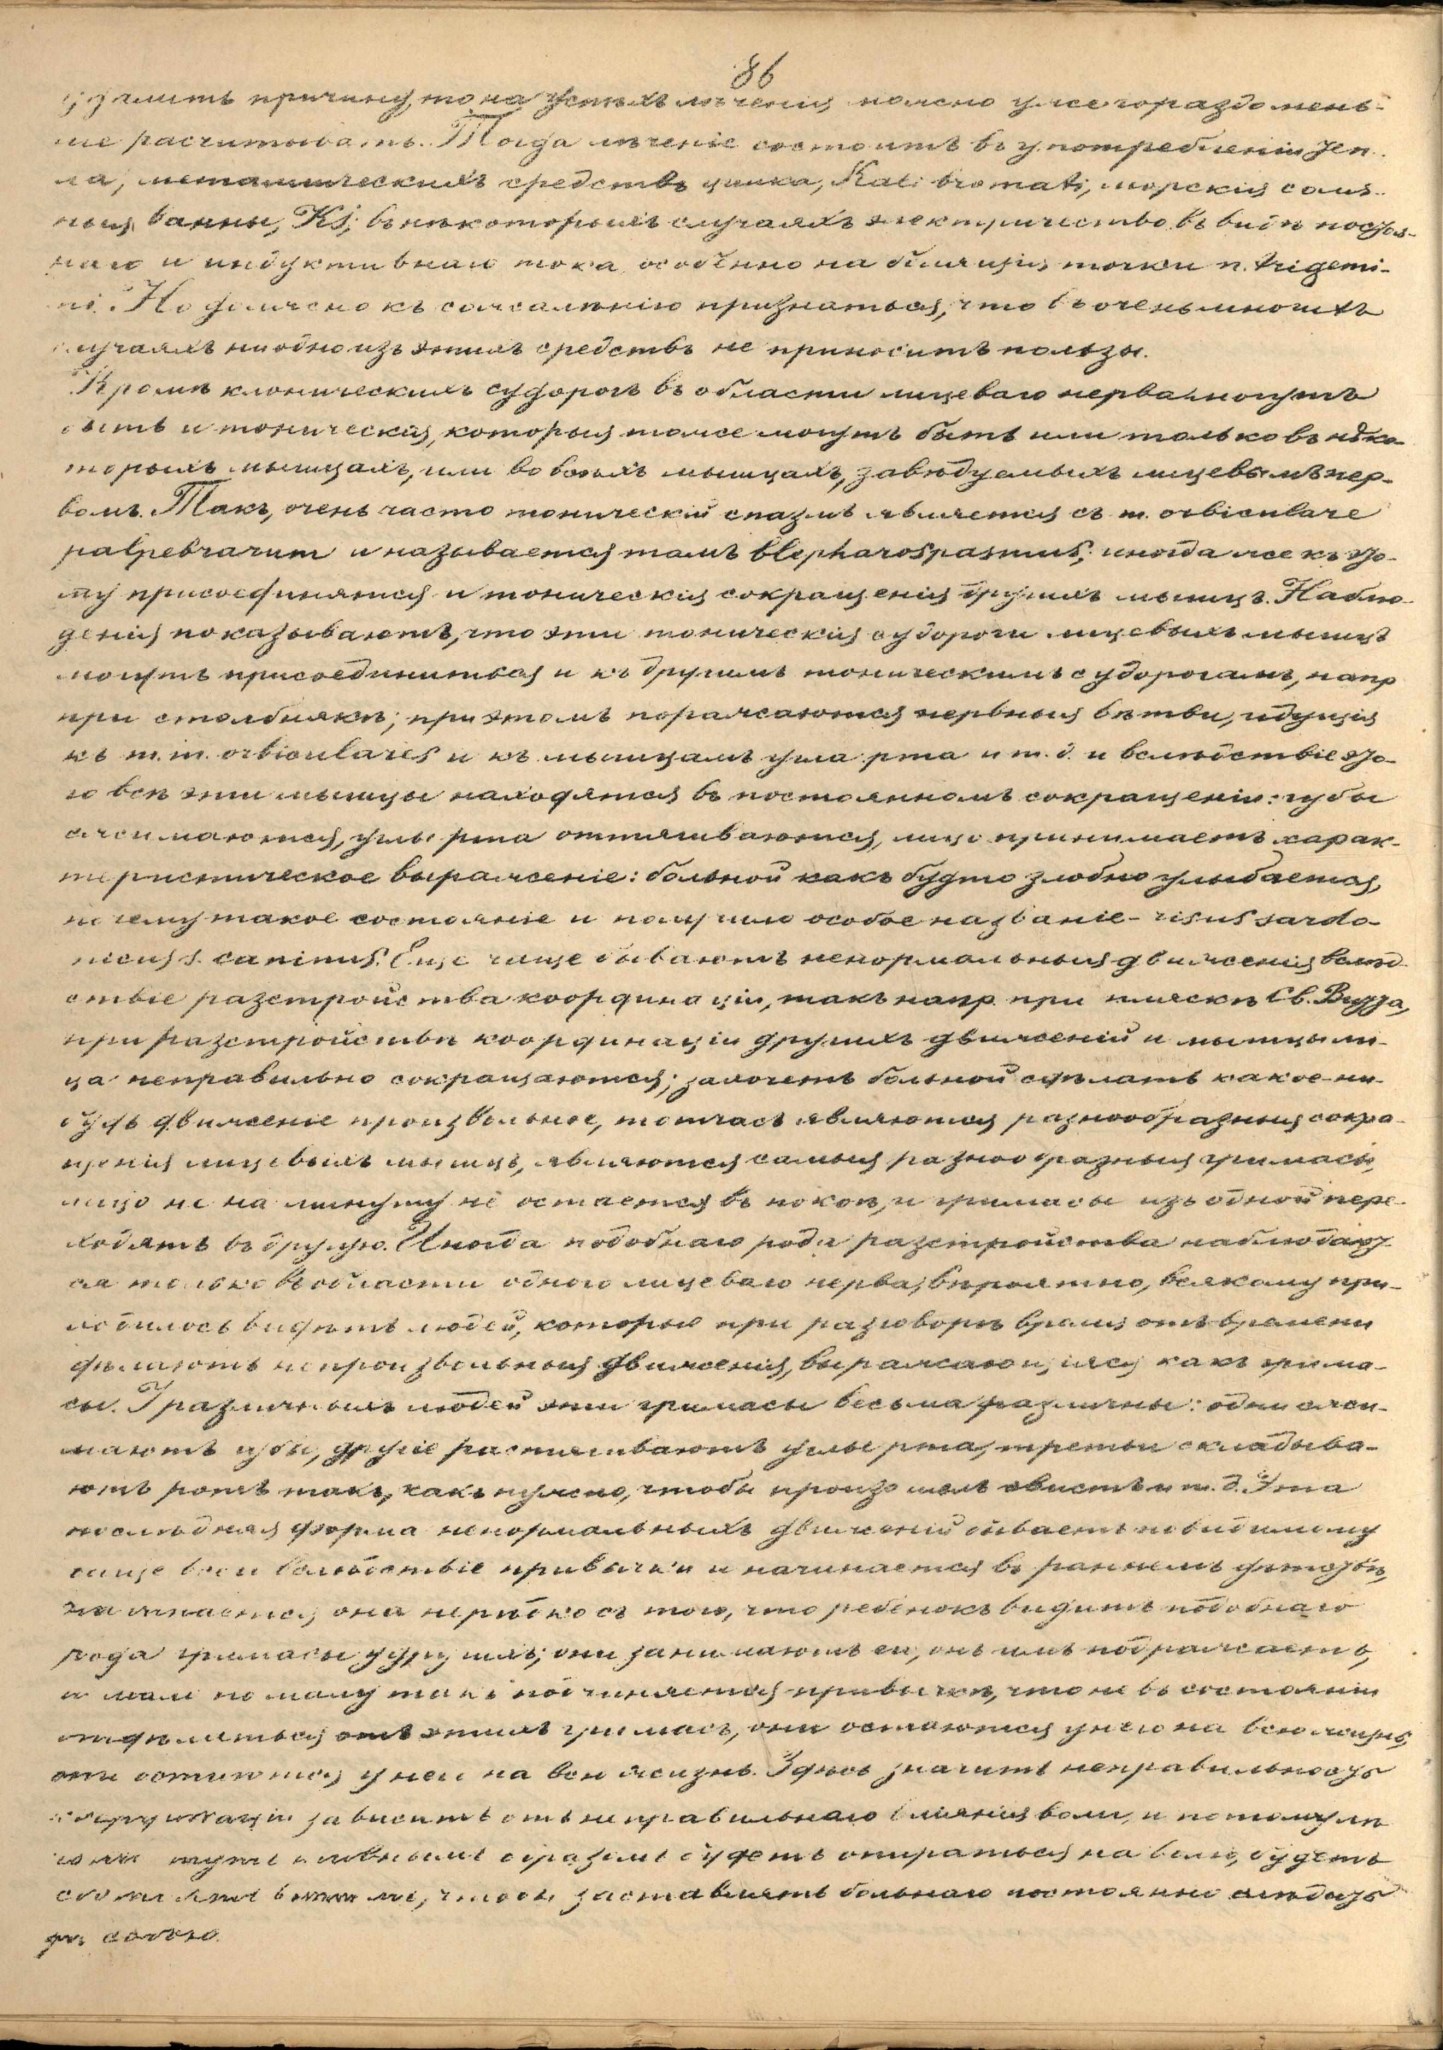 86
удалить причину, то на успехъ лѣченія можно уже гораздо мень-
ше расчитывать. Тогда лѣченіе состоитъ въ употребленіи теп-
ла, металлическихъ средствъ цинка, Kali bromati, морскія соля-
ныя ванны, KJ; въ нѣкоторыхъ случаяхъ электричество въ видѣ постоян-
наго и индуктивнаго тока особенно на болящія точки n. trigemi-
ni. Но должно къ сожалѣнію признаться, что въ очень многихъ
случаяхъ ни одно изъ этихъ средствъ не приноситъ пользы.
Кромѣ клоническихъ судорогъ въ области лицеваго нерва могутъ
быть и тоническія, которыя тоже могутъ быть или только въ нѣко-
торыхъ мышцахъ, или во всѣхъ мышцахъ, завѣдуемыхъ лицевымъ нер-
вомъ. Такъ, очень часто тоническій спазмъ является съ m. orbiculare
palpebrarum и называется тамъ blepharospasmus; иногда же къ это-
му присоединяются и тоническія сокращенія другихъ мышцъ. Наблю-
денія показываютъ, что эти тоническія судороги лицевыхъ мышцъ
могутъ присоединиться и къ другимъ тоническимъ судорогамъ, напр
при столбнякѣ; при этомъ поражаются нервныя вѣтви, идущія
къ m. m. orbiculares и къ мышцамъ угла рта и т. д. и вслѣдствіе это-
го всѣ эти мышцы находятся въ постоянномъ сокращеніи: губы
сжимаются, углы рта оттягиваются, лицо принимаетъ харак-
теристическое выраженіе: больной какъ будто злобно улыбается,
почему такое состояніе и получило особое названіе - risus sardo-
nicus s. caninus. Еще чаще бываютъ ненормальныя движенія вслѣд-
ствіе разстройства координаціи, такъ напр. при пляскѣ Св. Витта,
при разстройствѣ координаціи другихъ движеній и мышцы ли-
ца неправильно сокращаются; захочетъ больной сдѣлать какое-ни-
будь движеніе произвольное, тотчасъ являются разнообразныя сокра-
щенія лицевыхъ мышцъ, являются самыя разнообразныя гримасы,
лицо не на минуту не остается въ покоѣ, и гримасы изъ одной пере-
ходятъ въ другую. Иногда подобнаго рода разстройства наблюдают-
ся только въ области одного лицеваго нерва, вѣроятно, всякому при-
ходилось видѣть людей, которые при разговорѣ время отъ времени
дѣлаютъ непроизвольныя движенія, выражающіяся какъ грима-
сы. У различныхъ людей эти гримасы весьма различны: одни сжи-
маютъ губы, другіе растягиваютъ углы рта, третьи складыва-
ютъ ротъ такъ, какъ нужно, чтобы произошелъ свистъ и т. д. Эта
послѣдняя форма ненормальныхъ движеній бываетъ повидимому
чаще всего вслѣдствіе привычки и начинается въ раннемъ дѣтствѣ,
начинается она нерѣдко съ того, что ребенокъ видитъ подобнаго
рода гримасы у другихъ; они занимаютъ его, онъ имъ подражаетъ,
и мало по малу такъ подчиняется привычкѣ, что не въ состояніи
отдѣлаться отъ этихъ гримасъ, они остаются у него на всю жизнь,
они остаются у него на всю жизнь. Здѣсь значитъ неправильность
координаціи зависитъ отъ неправильнаго вліянія воли, и потому лѣ-
ченіе тутъ главнымъ образомъ будетъ опираться на волю, будетъ
состоять въ томъ, чтобы заставлять больнаго постоянно слѣдить
за собою.